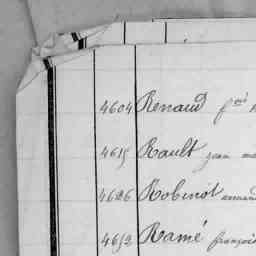 4604 Renaud f.ois
4615 Rault jean
4626 Robinot
4652 Ramé françois